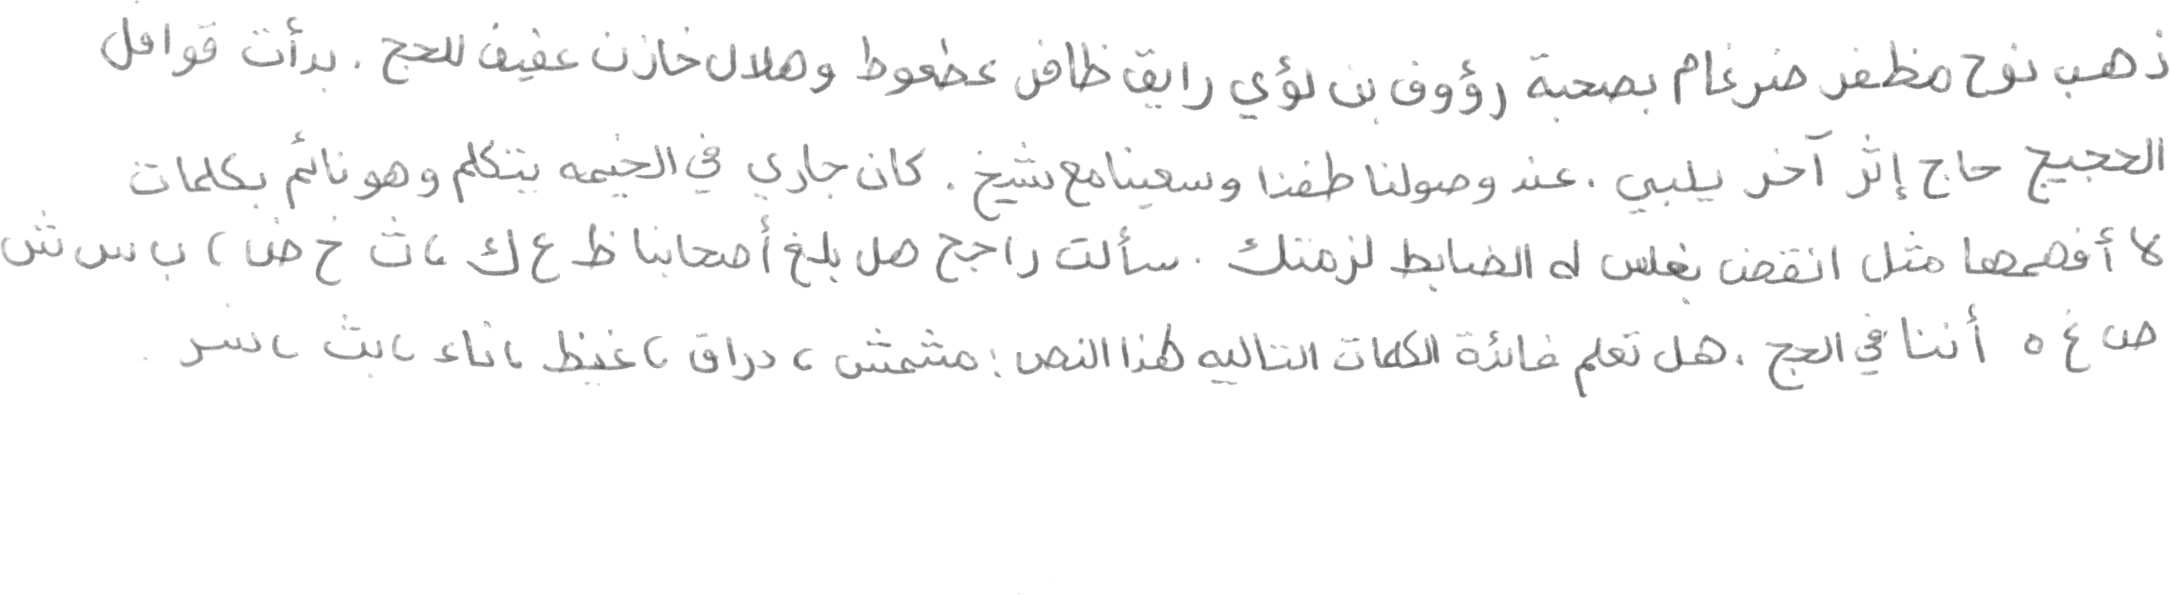 ذهب نوح مظفر ضرغام بصحبة رؤوف بن لؤي رايق ظافر عطعوط وهلال خازن عفيف للحج . بدأت قوافل
الحجيج حاج إثر آخر يلبي . عند وصولنا طفنا وسعينا مع شيخ . كان جاري في الخيمه يتكلم وهو نائم بكلمات
لا أفهمها مثل انقض بغلس له الضابط لزمتك . سألت راجح هل بلغ أصحابنا ظ ع ك ، ث خ ض ، ب س ش
ص غ ه أننا في الحج . هل تعلم فائدة الكلمات التاليه لهذا النص : مشمش ، دراق ، غيظ ، ناء ، بث ، نسر .